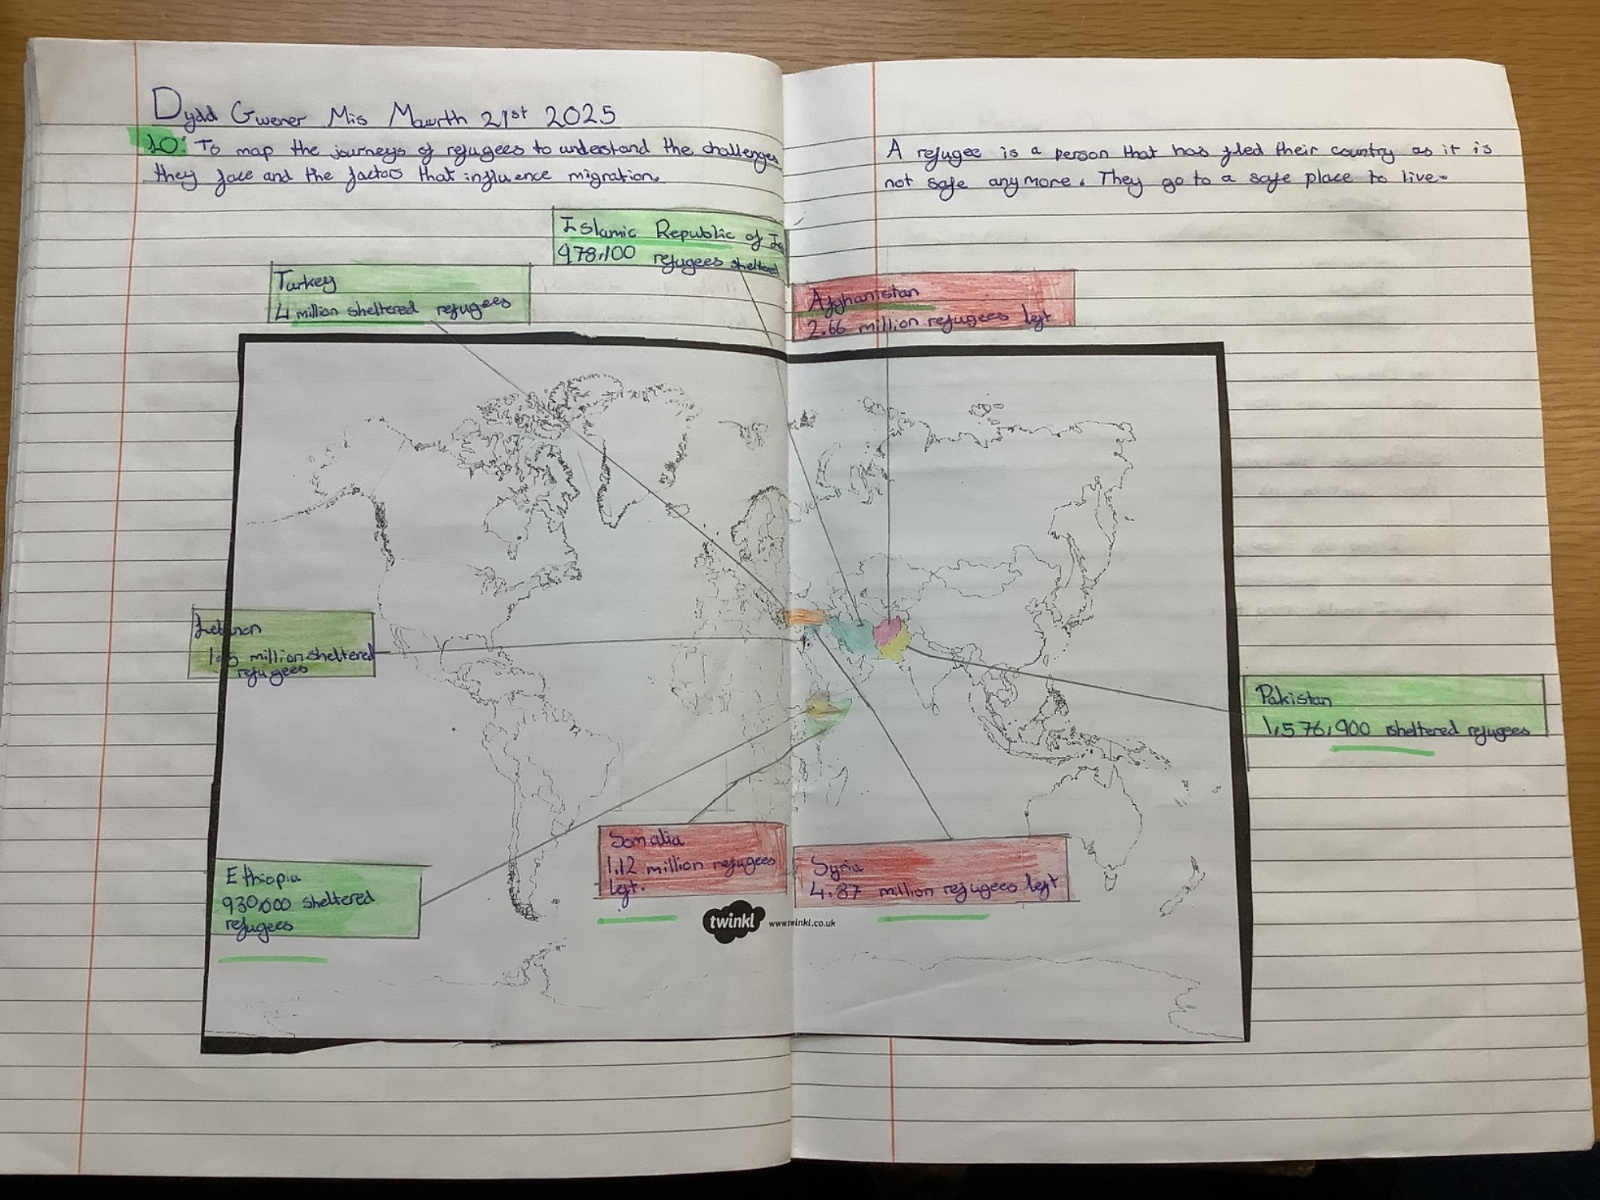 Dydd Gwener Mis Mawrth 21st 2025
LO: To map the journeys of refugees to understand the challenges
they face and the factors that influence migration.
A refugee is a person that has fled their country as it is
not safe anymore. They go to a safe place to live.
Islamic Republic of
978,100 refugees sheltered
Turkey
4 million sheltered refugees
Afghanistan
2.66 million refugees left
Lebanon
million sheltered
refugees
Pakistan
1,576,900 sheltered refugees
Somalia
1.12 million refugees
left.
Syria
4.87 million refugees left
Ethiopia
930,000 sheltered
refugees
twinkl
www.twinkl.co.uk